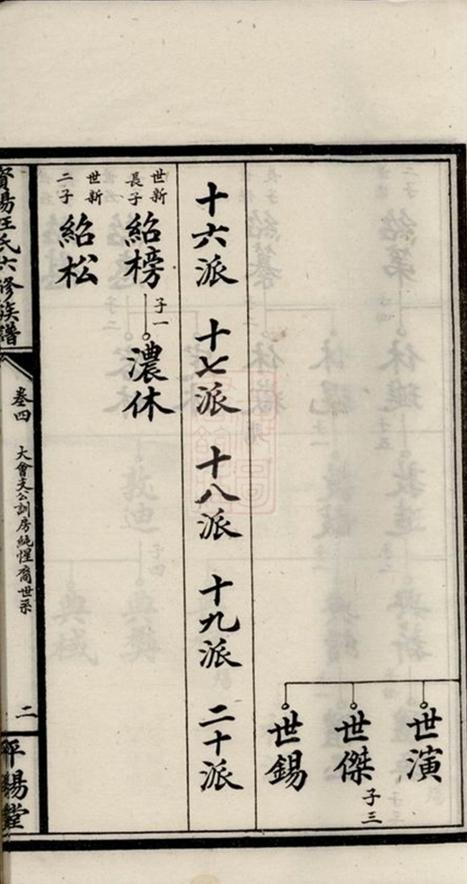 世演
世傑 子三
世錫
十六派 十七派 十八派 十九派 二十派
世新長子 紹榜 子一 濃休
世新二子 紹松
汪氏六修族譜 卷四 大會支公訓房純惺裔世系 二 平陽堂